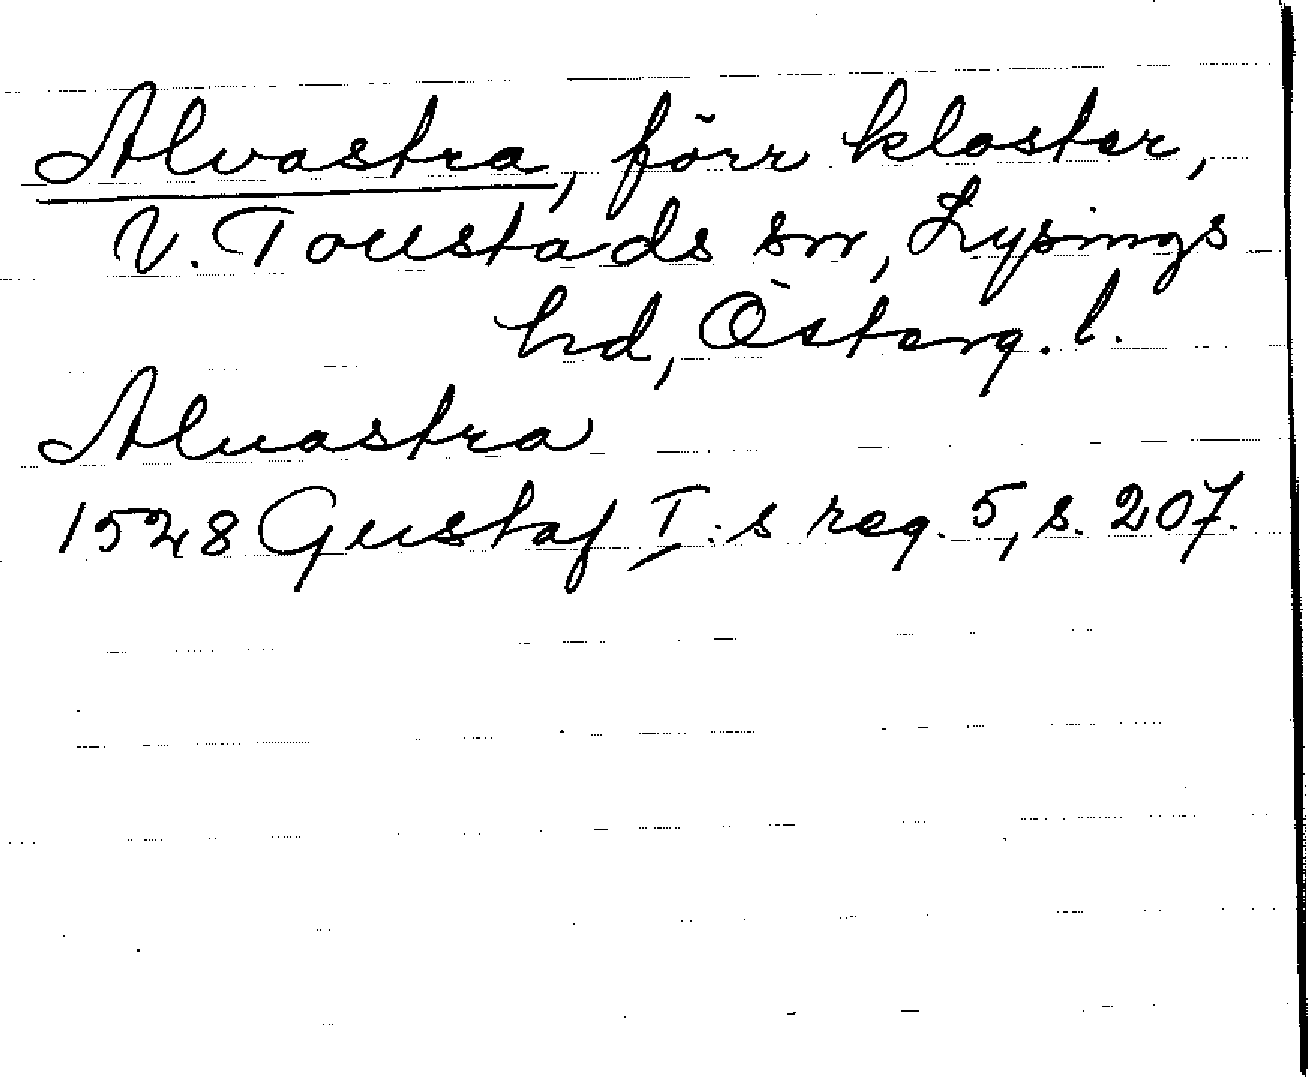 Alvastra, förr kloster,
V. Toustads sn, Lysings
hd, Österg. l.
Aluastra
1528 Gustaf I:s reg. 5, s. 207.